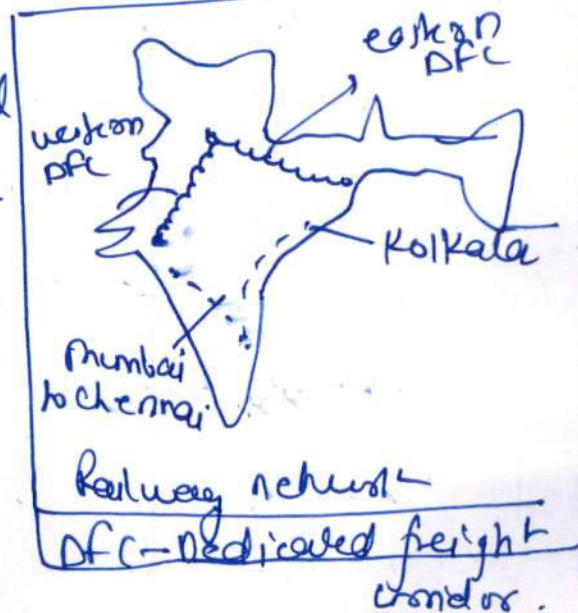 eastern
DFC
western
DFC
Kolkata
Mumbai
to Chennai
Railway network
DFC - Dedicated freight
corridor.